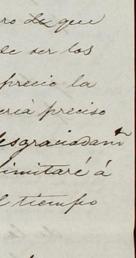 ro de que
de ser los
precio la
eria preciso
desgraciadam^te
imitaré á
l tiempo